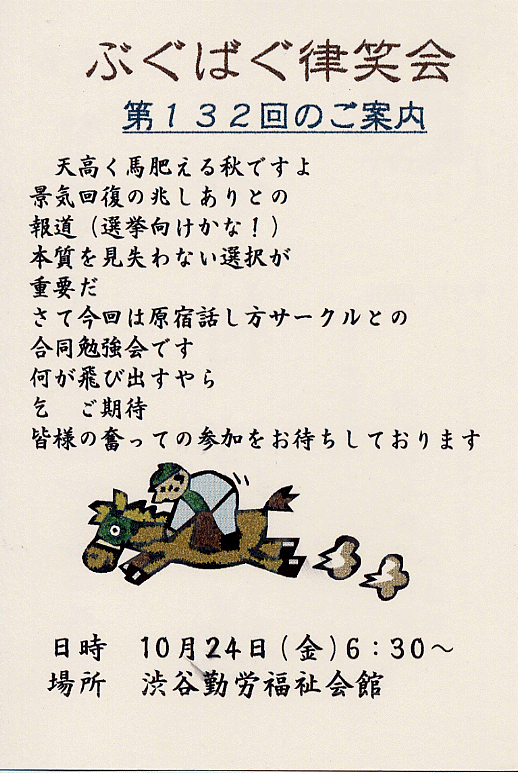 ぶぐばぐ律笑会
第132回のご案内
天高く馬肥える秋ですよ
景気回復の兆しありとの
報道（選挙向けかな！）
本質を見失わない選択が
重要だ
さて今回は原宿話し方サークルとの
合同勉強会です
何が飛び出すやら
乞　ご期待
皆様の奮っての参加をお待ちしております
日時　10月24日(金)6：30～
場所　渋谷勤労福祉会館